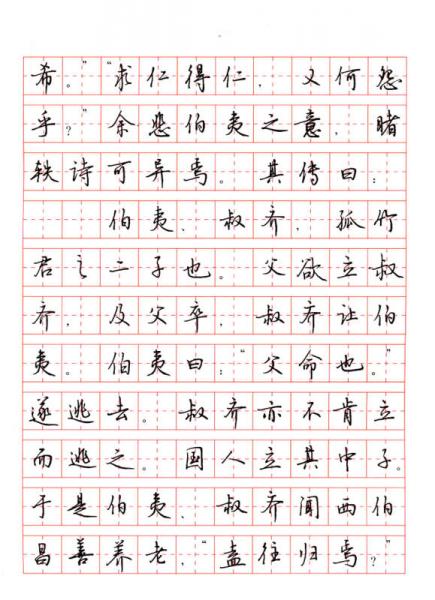 希。”“求仁得仁，又何怨
乎？”余悲伯夷之意，睹
轶诗可异焉。其传曰：
伯夷、叔齐，孤竹
君之二子也。父欲立叔
齐，及父卒，叔齐让伯
夷。伯夷曰：“父命也。”
遂逃去。叔齐亦不肯立
而逃之。国人立其中子。
于是伯夷、叔齐闻西伯
昌善养老，“盍往归焉？”